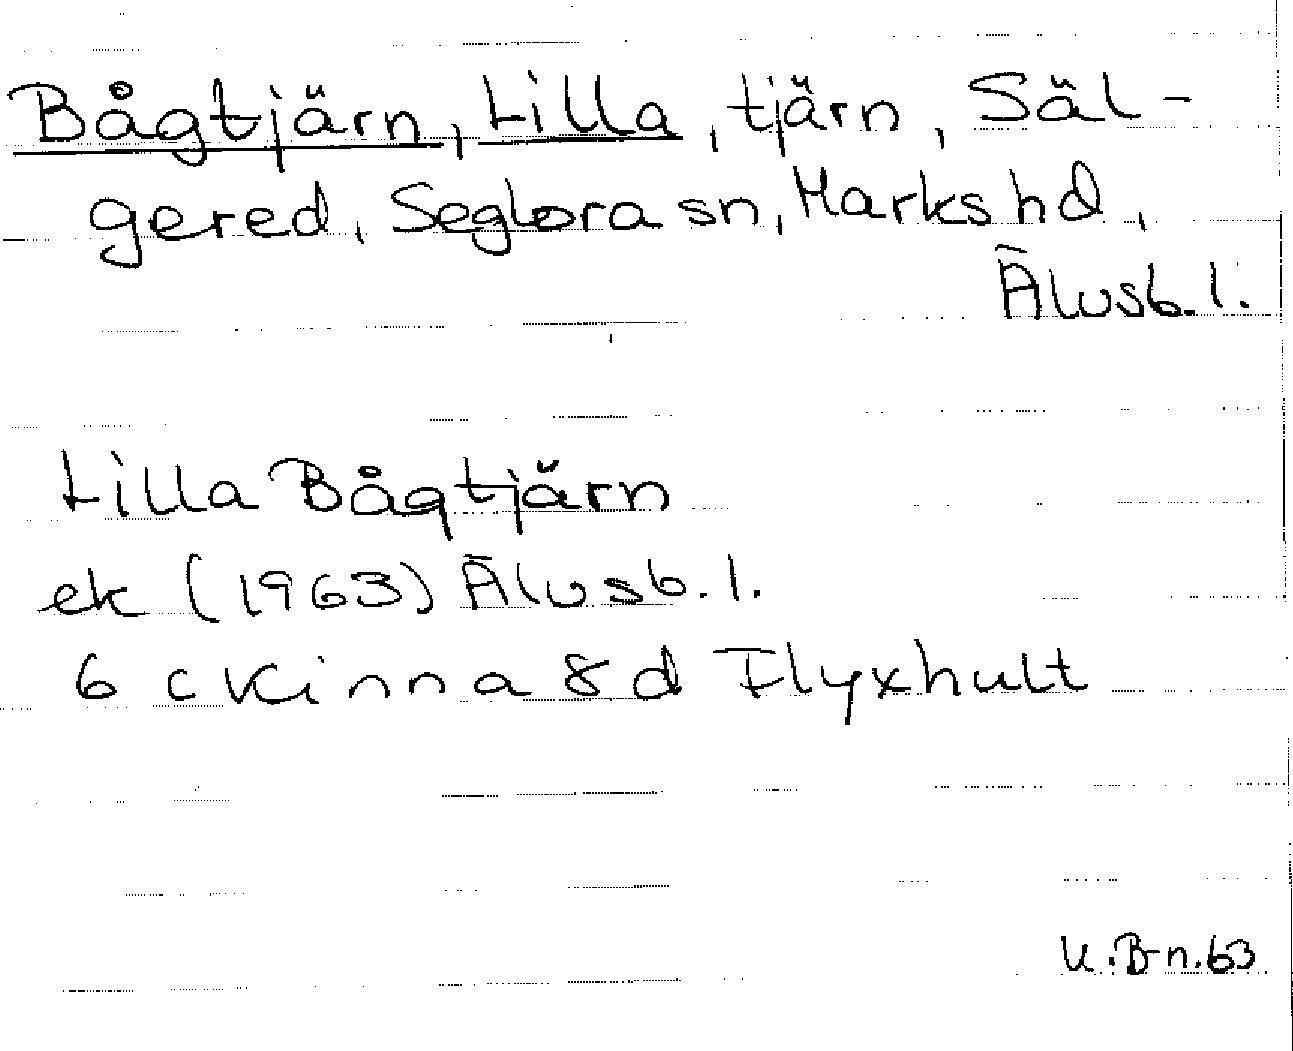 Bågtjärn, Lilla, tjärn, Säl-
gered, Seglora sn, Marks hd,
Älvsb. l.
Lilla Bågtjärn
ek (1963) Älvsb. l.
6 c Kinna 8 d Flyxhult
U. B-n. 63